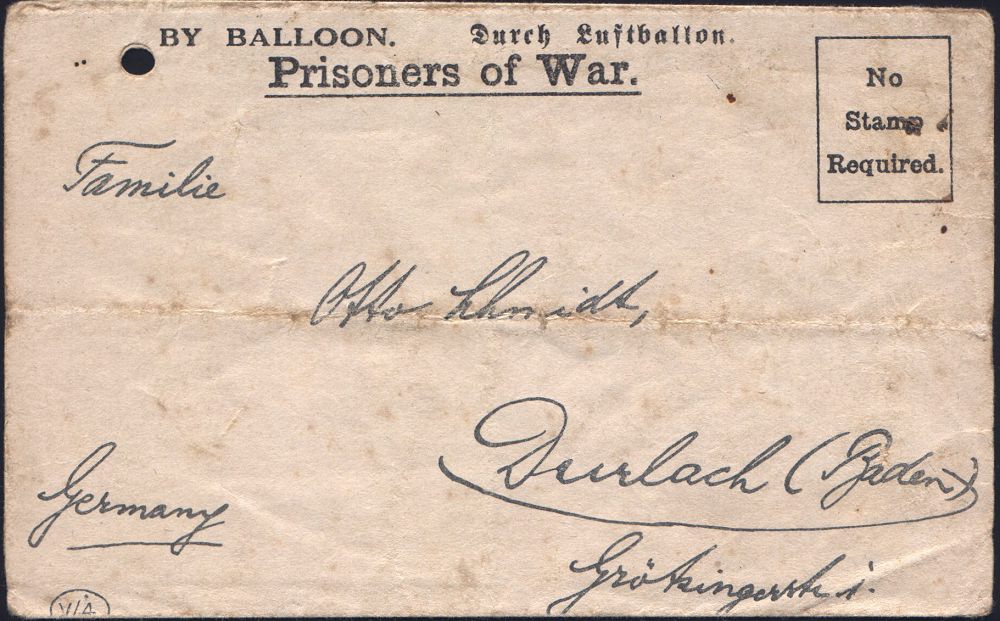 BY BALLOON. Durch Luftballon.
Prisoners of War.
No
Stamp
Required.
Familie
Otto Schmidt,
Durlach (Baden)
Germany
Grötzingerstr.